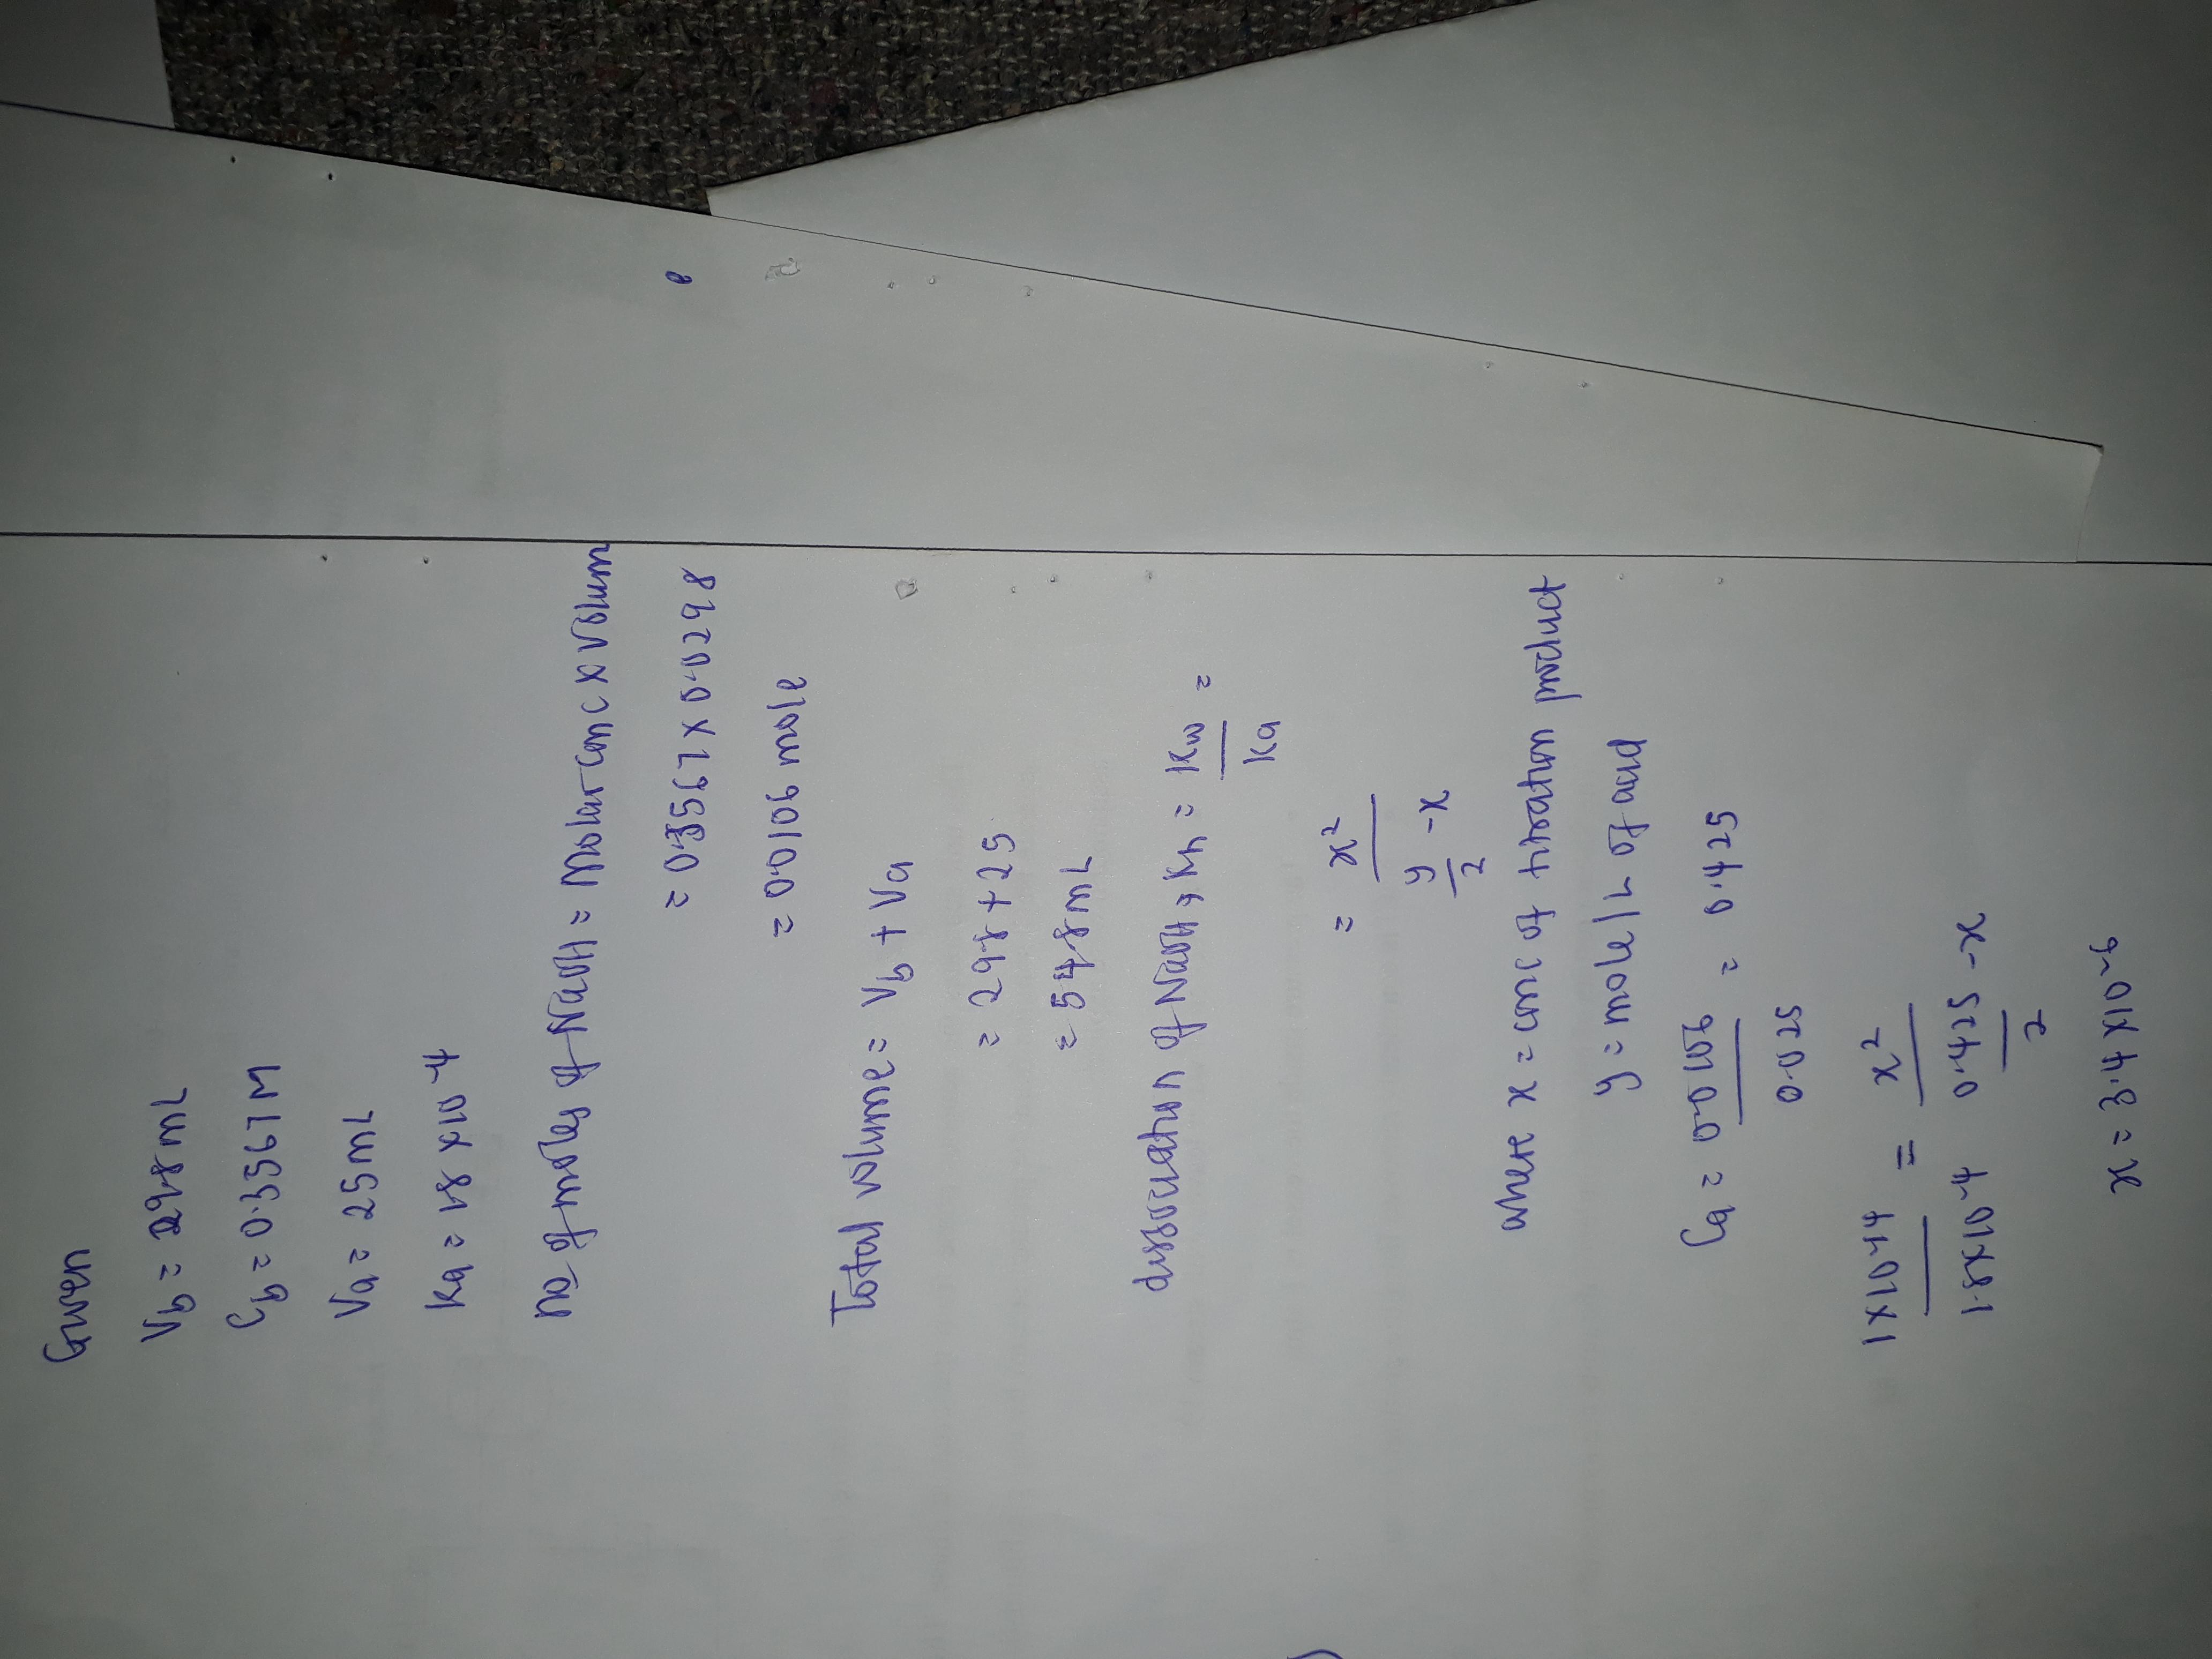 Given
Vb = 29.8 mL
Cb = 0.3567 M
Va = 25 mL
Ka = 1.8 x10^-4
no of moles of NaOH = Molar conc x volum
= 0.3567 x 0.0298
= 0.0106 mole
Total volume = Vb + Va
= 29.8 + 25
= 54.8 mL
dissociation of NaOH, Kh = Kw/Ka =
= x²/(y/2 - x)
where x = conc of titration product
y = mole/L of acid
Ca = 0.0106/0.025 = 0.425
1x10^-14/1.8x10^-4 = x²/(0.425/2 - x)
x = 3.4 x10^-6